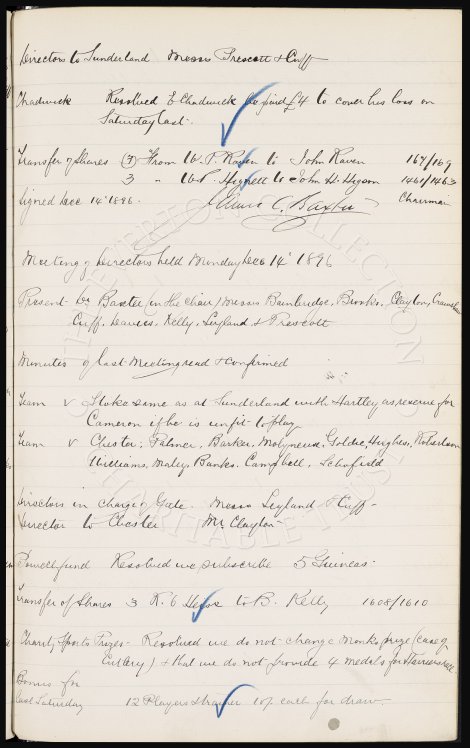 Directors to Sunderland Messrs Prescott & Cuff
Chadwick Resolved E Chadwick be paid £4 to cover his loss on
Saturday last.
Transfer of Shares (3) From W. P. Raven to John Raven 167/169
3 " W.P. Hignett to John H. Higson 1461/1463
Signed Dec 14th 1896. James C. Baxter Chairman
Meeting of Directors held Monday Dec 14th 1896
Present Dr Baxter (in the chair) Messrs Bainbridge, Brooks, Clayton, Crawshaw
Cuff, Davies, Kelly, Leyland & Prescott
Minutes of last Meeting read & confirmed
Team v Stoke same as at Sunderland with Hartley as reserve for
Cameron if he is unfit to play
Team v Chester, Palmer, Barker, Molyneux, Goldie, Hughes, Robertson
Williams, Maley, Banks, Campbell, Schofield
Directors in charge of Gate. Messrs Leyland & Cuff
Director to Chester Mr Clayton
Powell fund Resolved we subscribe 5 Guineas.
Transfer of Shares 3 R. G to B. Kelly 1608/1610
Charity Sports Prizes - Resolved we do not change Monks prize (case of
Cutlery) & that we do not provide 4 medals for Harriers race
Bonus for
last Saturday 12 Players & trainer 10/- each for draw.